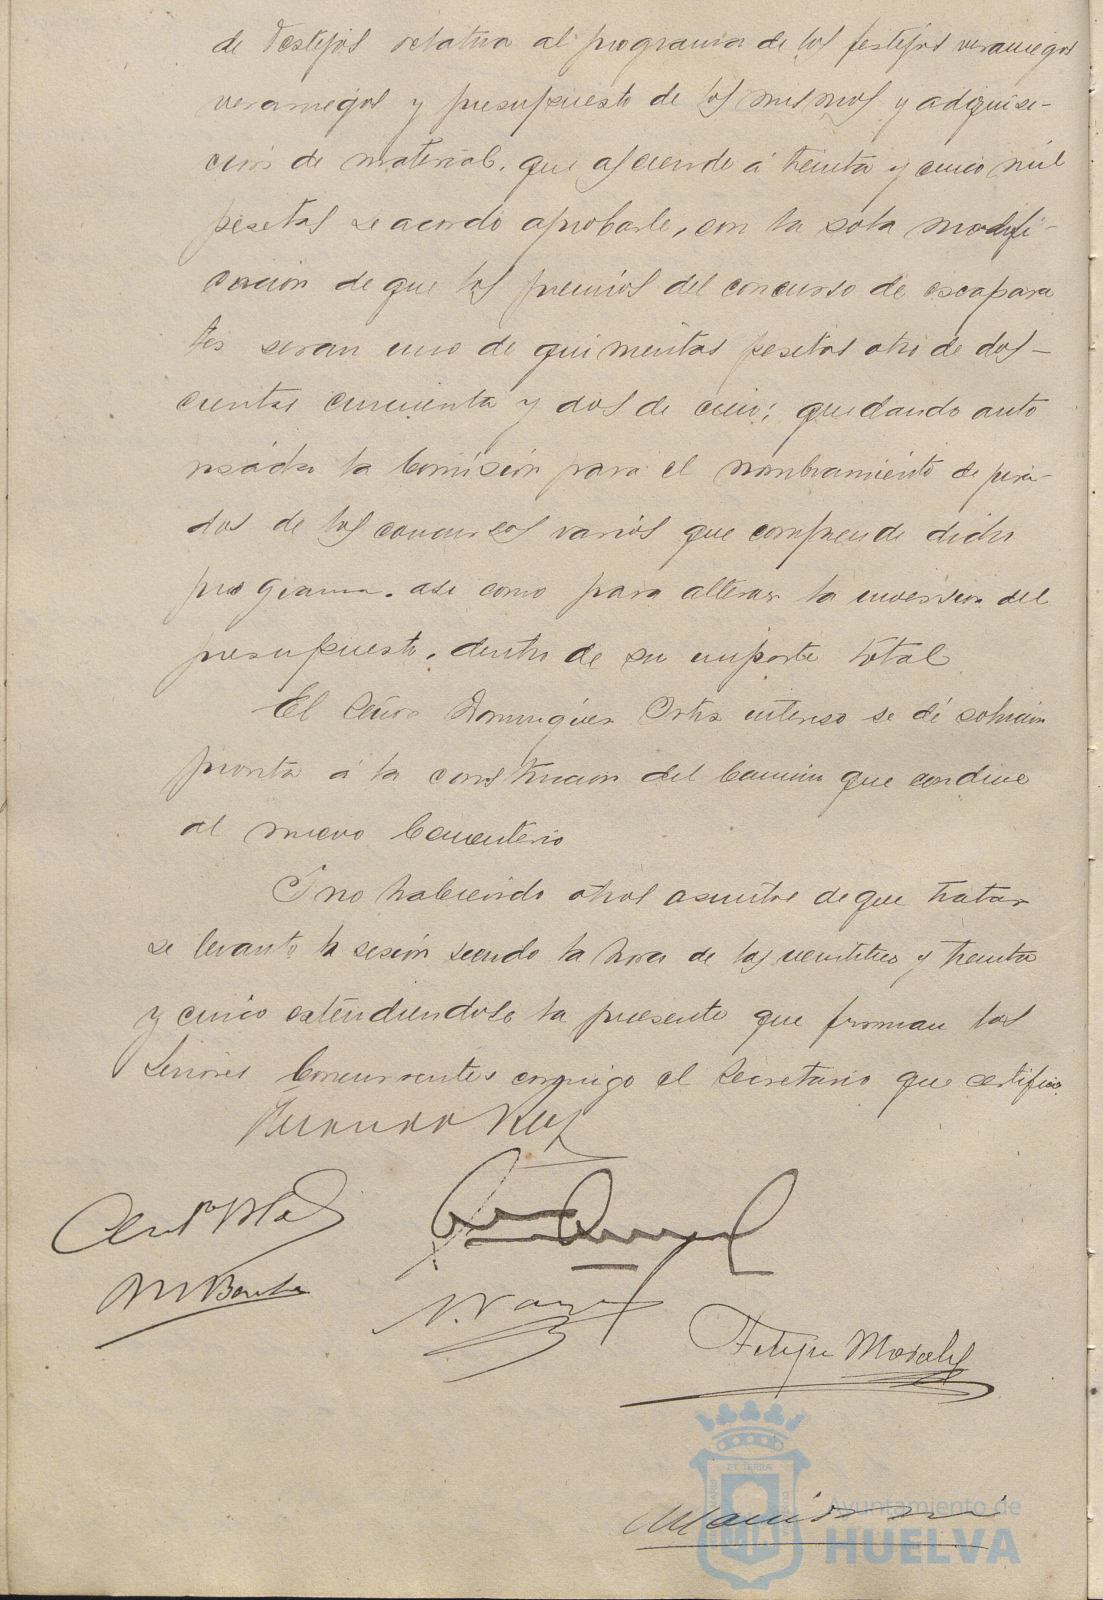 de Festejos relativa al programa de los festejos veraniegos
veraniegos y presupuesto de los mismos y adquisi-
cion de material, que asciende á treinta y cinco mil
pesetas se acordo aprobarle, con la sola modifi-
cacion de que los premios del concurso de escapara
tes seran uno de quinientas pesetas otro de dos-
cientas cincuenta y dos de cien; quedando auto
risada la Comisión para el nombramiento de jura-
dos de los concursos varios que comprende dicho
programa. asi como para alterar la inversion del
presupuesto, dentro de su importe total
El Señor Dominguez Ortiz intereso se dé solucion
pronta á la construccion del Camino que conduce
al nuevo Cementerio
Y no habiendo otros asuntos de que tratar
se levanto la sesión siendo la hora de las veintitres y treinta
y cinco extendiendose la presente que firman los
Señores Concurrentes conmigo el Secretario que certifico
Felipe Morales
Ayuntamiento de
HUELVA